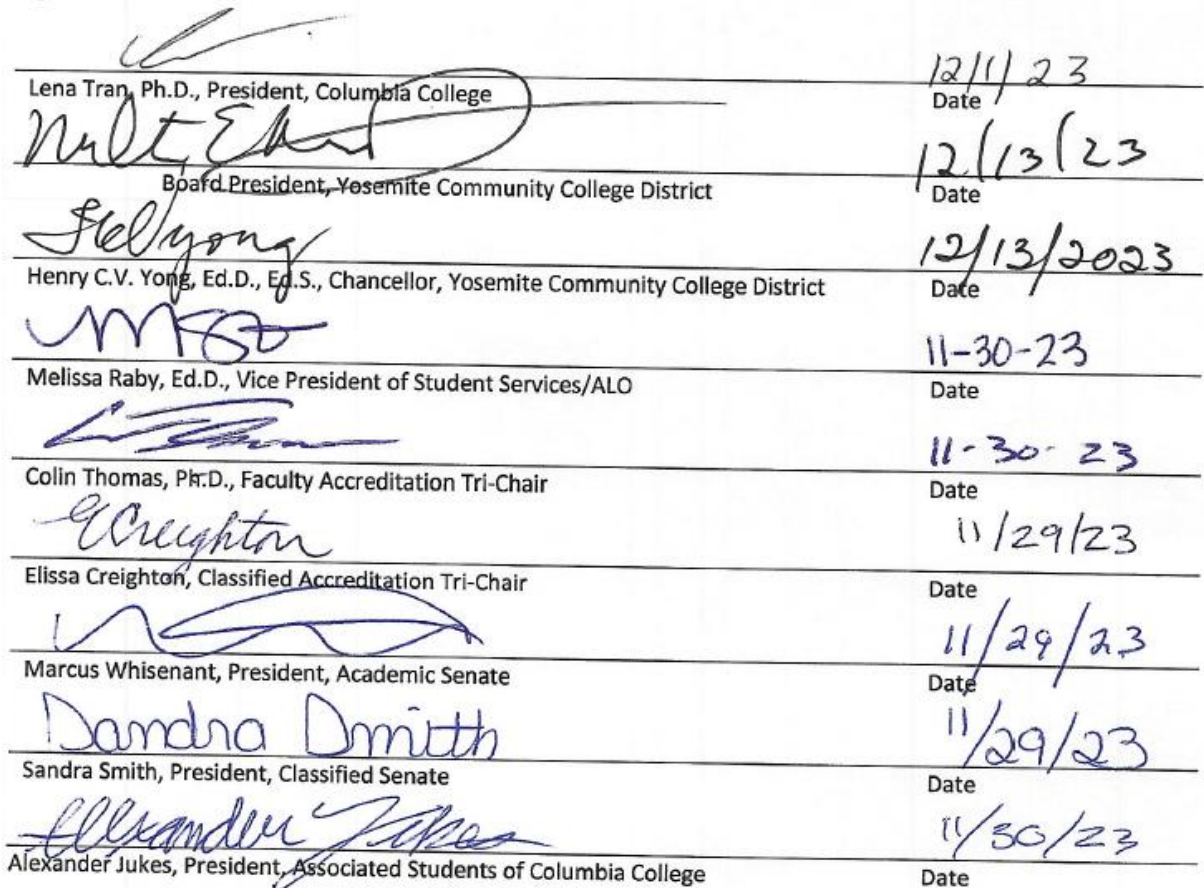 12/1/23
Lena Tran, Ph.D., President, Columbia College Date
12/13/23
Board President, Yosemite Community College District Date
12/13/2023
Henry C.V. Yong, Ed.D., Ed.S., Chancellor, Yosemite Community College District Date
11-30-23
Melissa Raby, Ed.D., Vice President of Student Services/ALO Date
11-30-23
Colin Thomas, Ph.D., Faculty Accreditation Tri-Chair Date
ECreighton 11/29/23
Elissa Creighton, Classified Accreditation Tri-Chair Date
11/29/23
Marcus Whisenant, President, Academic Senate Date
Sandra Smith 11/29/23
Sandra Smith, President, Classified Senate Date
Alexander Jukes 11/30/23
Alexander Jukes, President, Associated Students of Columbia College Date